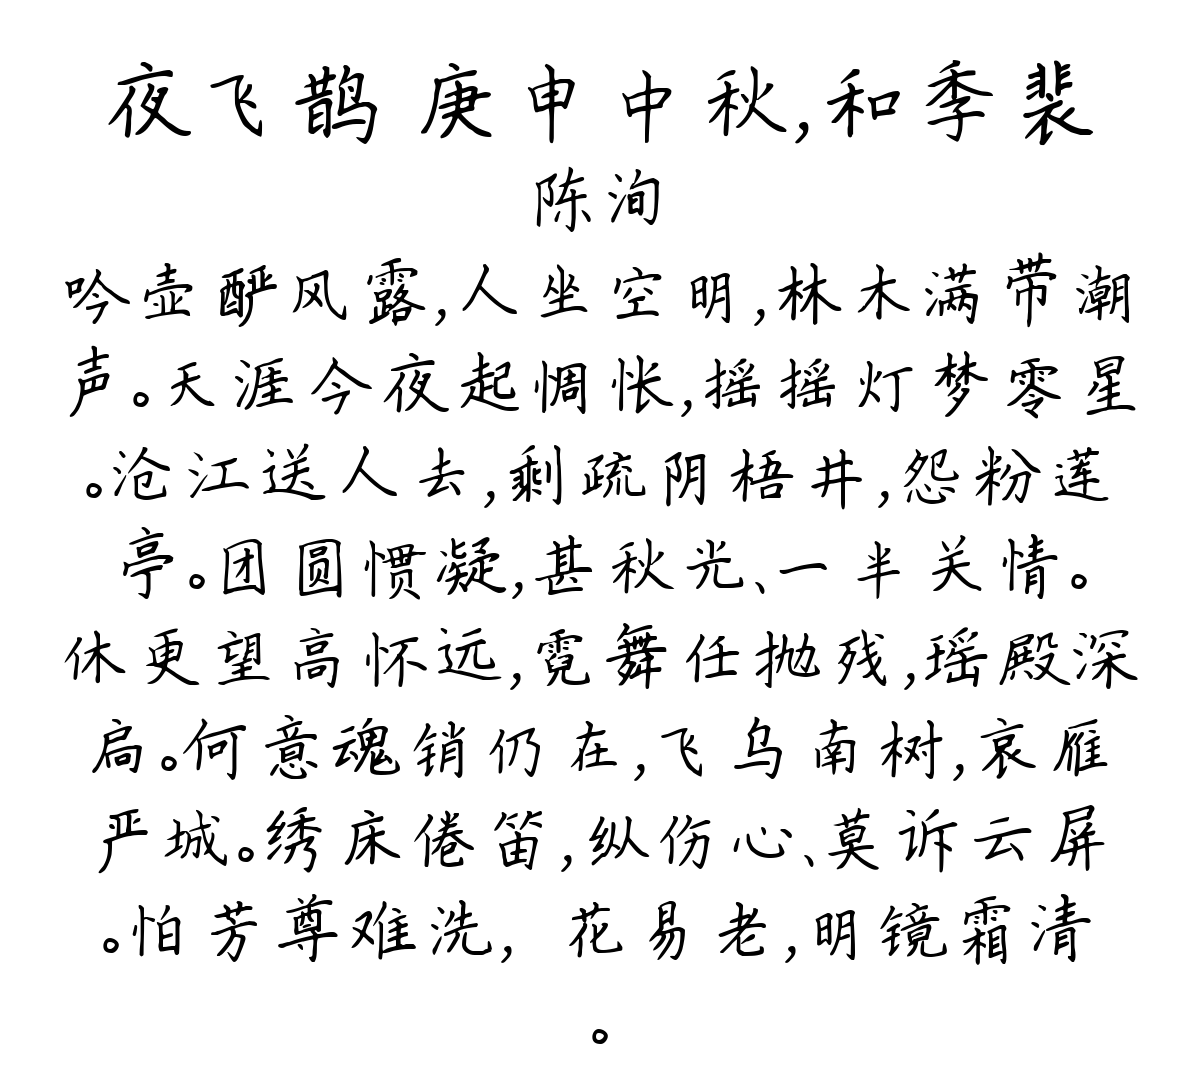 夜飞鹊 庚申中秋,和季裴
陈洵
吟壶酽风露,人坐空明,林木满带潮
声。天涯今夜起惆怅,摇摇灯梦零星
。沧江送人去,剩疏阴梧井,怨粉莲
亭。团圆惯凝,甚秋光、一半关情。
休更望高怀远,霓舞任抛残,瑶殿深
扃。何意魂销仍在,飞乌南树,哀雁
严城。绣床倦笛,纵伤心、莫诉云屏
。怕芳尊难洗, 花易老,明镜霜清
。